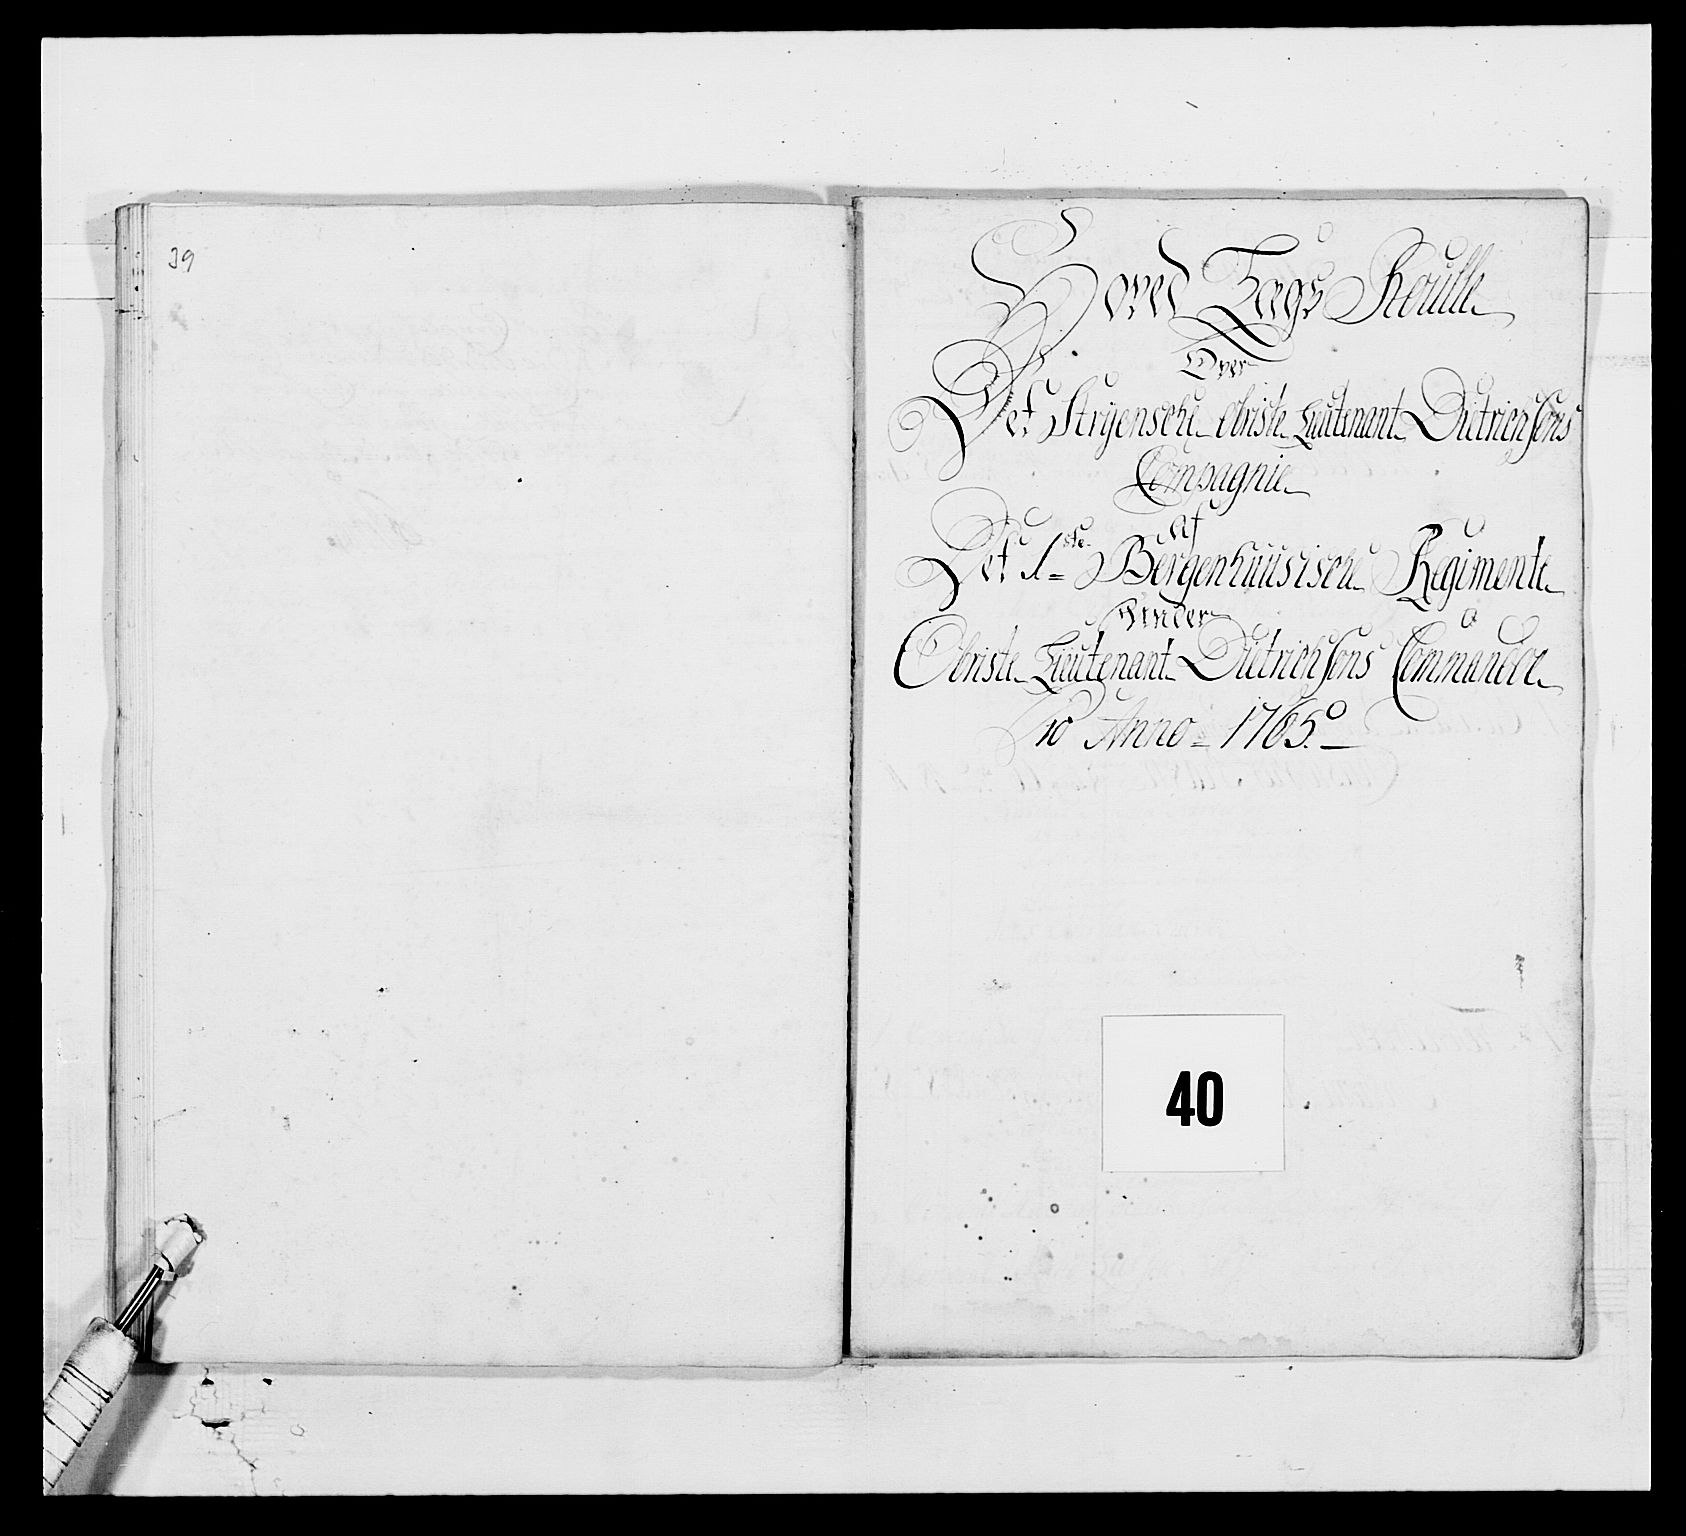 39
Hoved Lægs Roulle
Over
Det Stryenske Obriste Lieutenant Dietrichsons
Compagnie
Af
Det 1ste Bergenhuusiske Regimente
Under
Obriste Lieutenant Dietrichsons Commando
pro Anno 1765.
40